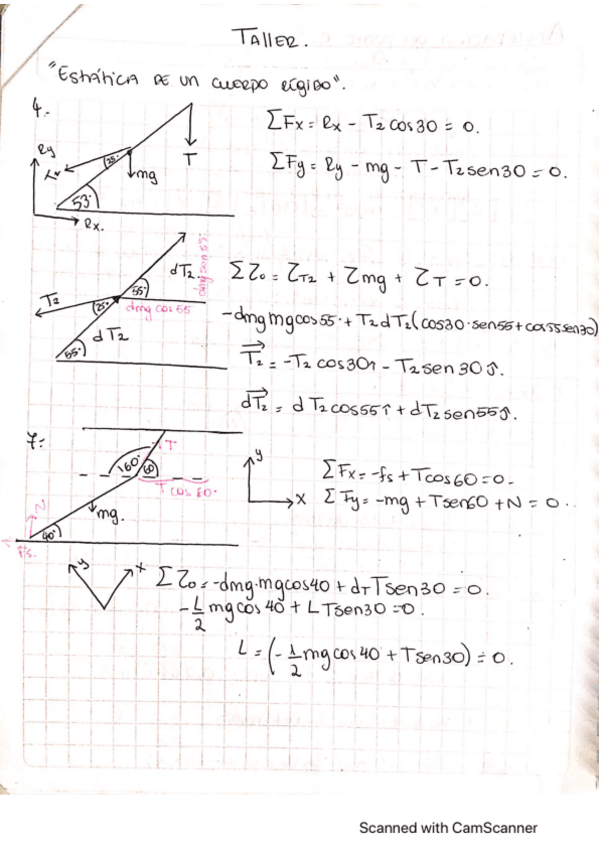 TALLER.
"Estática de un cuerpo rígido".
4.-
Ry
25°
mg
T
53°
Rx.
ΣFx = Rx - T2 cos30 = 0.
ΣFy = Ry - mg - T - T2 sen30 = 0.
dT2.
dmg sen 55
55°
T2
25°
dmg cos 55
dT2
55°
Στo = τT2 + τmg + τT = 0.
-dmg mg cos55 + T2 dT2 (cos30·sen55 + cos55 sen30)
T2 = -T2 cos30î - T2 sen30ĵ.
dT2 = dT2 cos55î + dT2 sen55ĵ.
7:
T
160°
60
T cos 60.
N
mg.
40°
fs.
y
x
ΣFx = -fs + T cos60 = 0.
ΣFy = -mg + T sen60 + N = 0.
y
x
Στo = -dmg·mg cos40 + dT T sen30 = 0.
-L/2 mg cos40 + L T sen30 = 0.
L = (-1/2 mg cos40 + T sen30) = 0.
Scanned with CamScanner